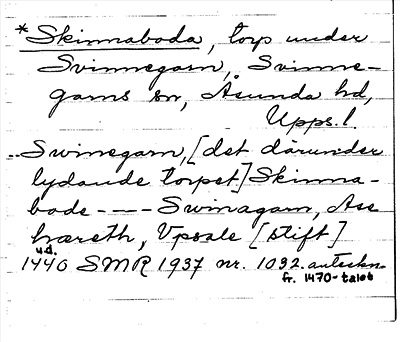 *Skinnaboda, torp under
Svinnegarn, Svinne-
garns sn, Åsunda hd,
Upps. l.
..Swinegarn, [det därunder
lydande torpet] Skinna-
bode --- Swinagarn, Ass
hæreth, Vpsale [stift]
u.d.
1440 SMR 1937 nr. 1032. anteckn.
fr. 1470-talet